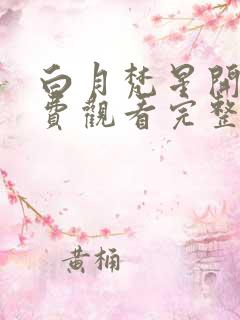 白月梵星開
費觀看完整
黃桶